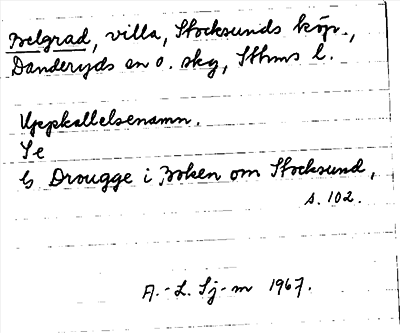 Belgrad, villa, Stocksunds köp.,
Danderyds sn o. skg, Sthms l.
Uppkallelsenamn.
Se
G Drougge i Boken om Stocksund,
s. 102.
A.-L. Sj-m 1967.